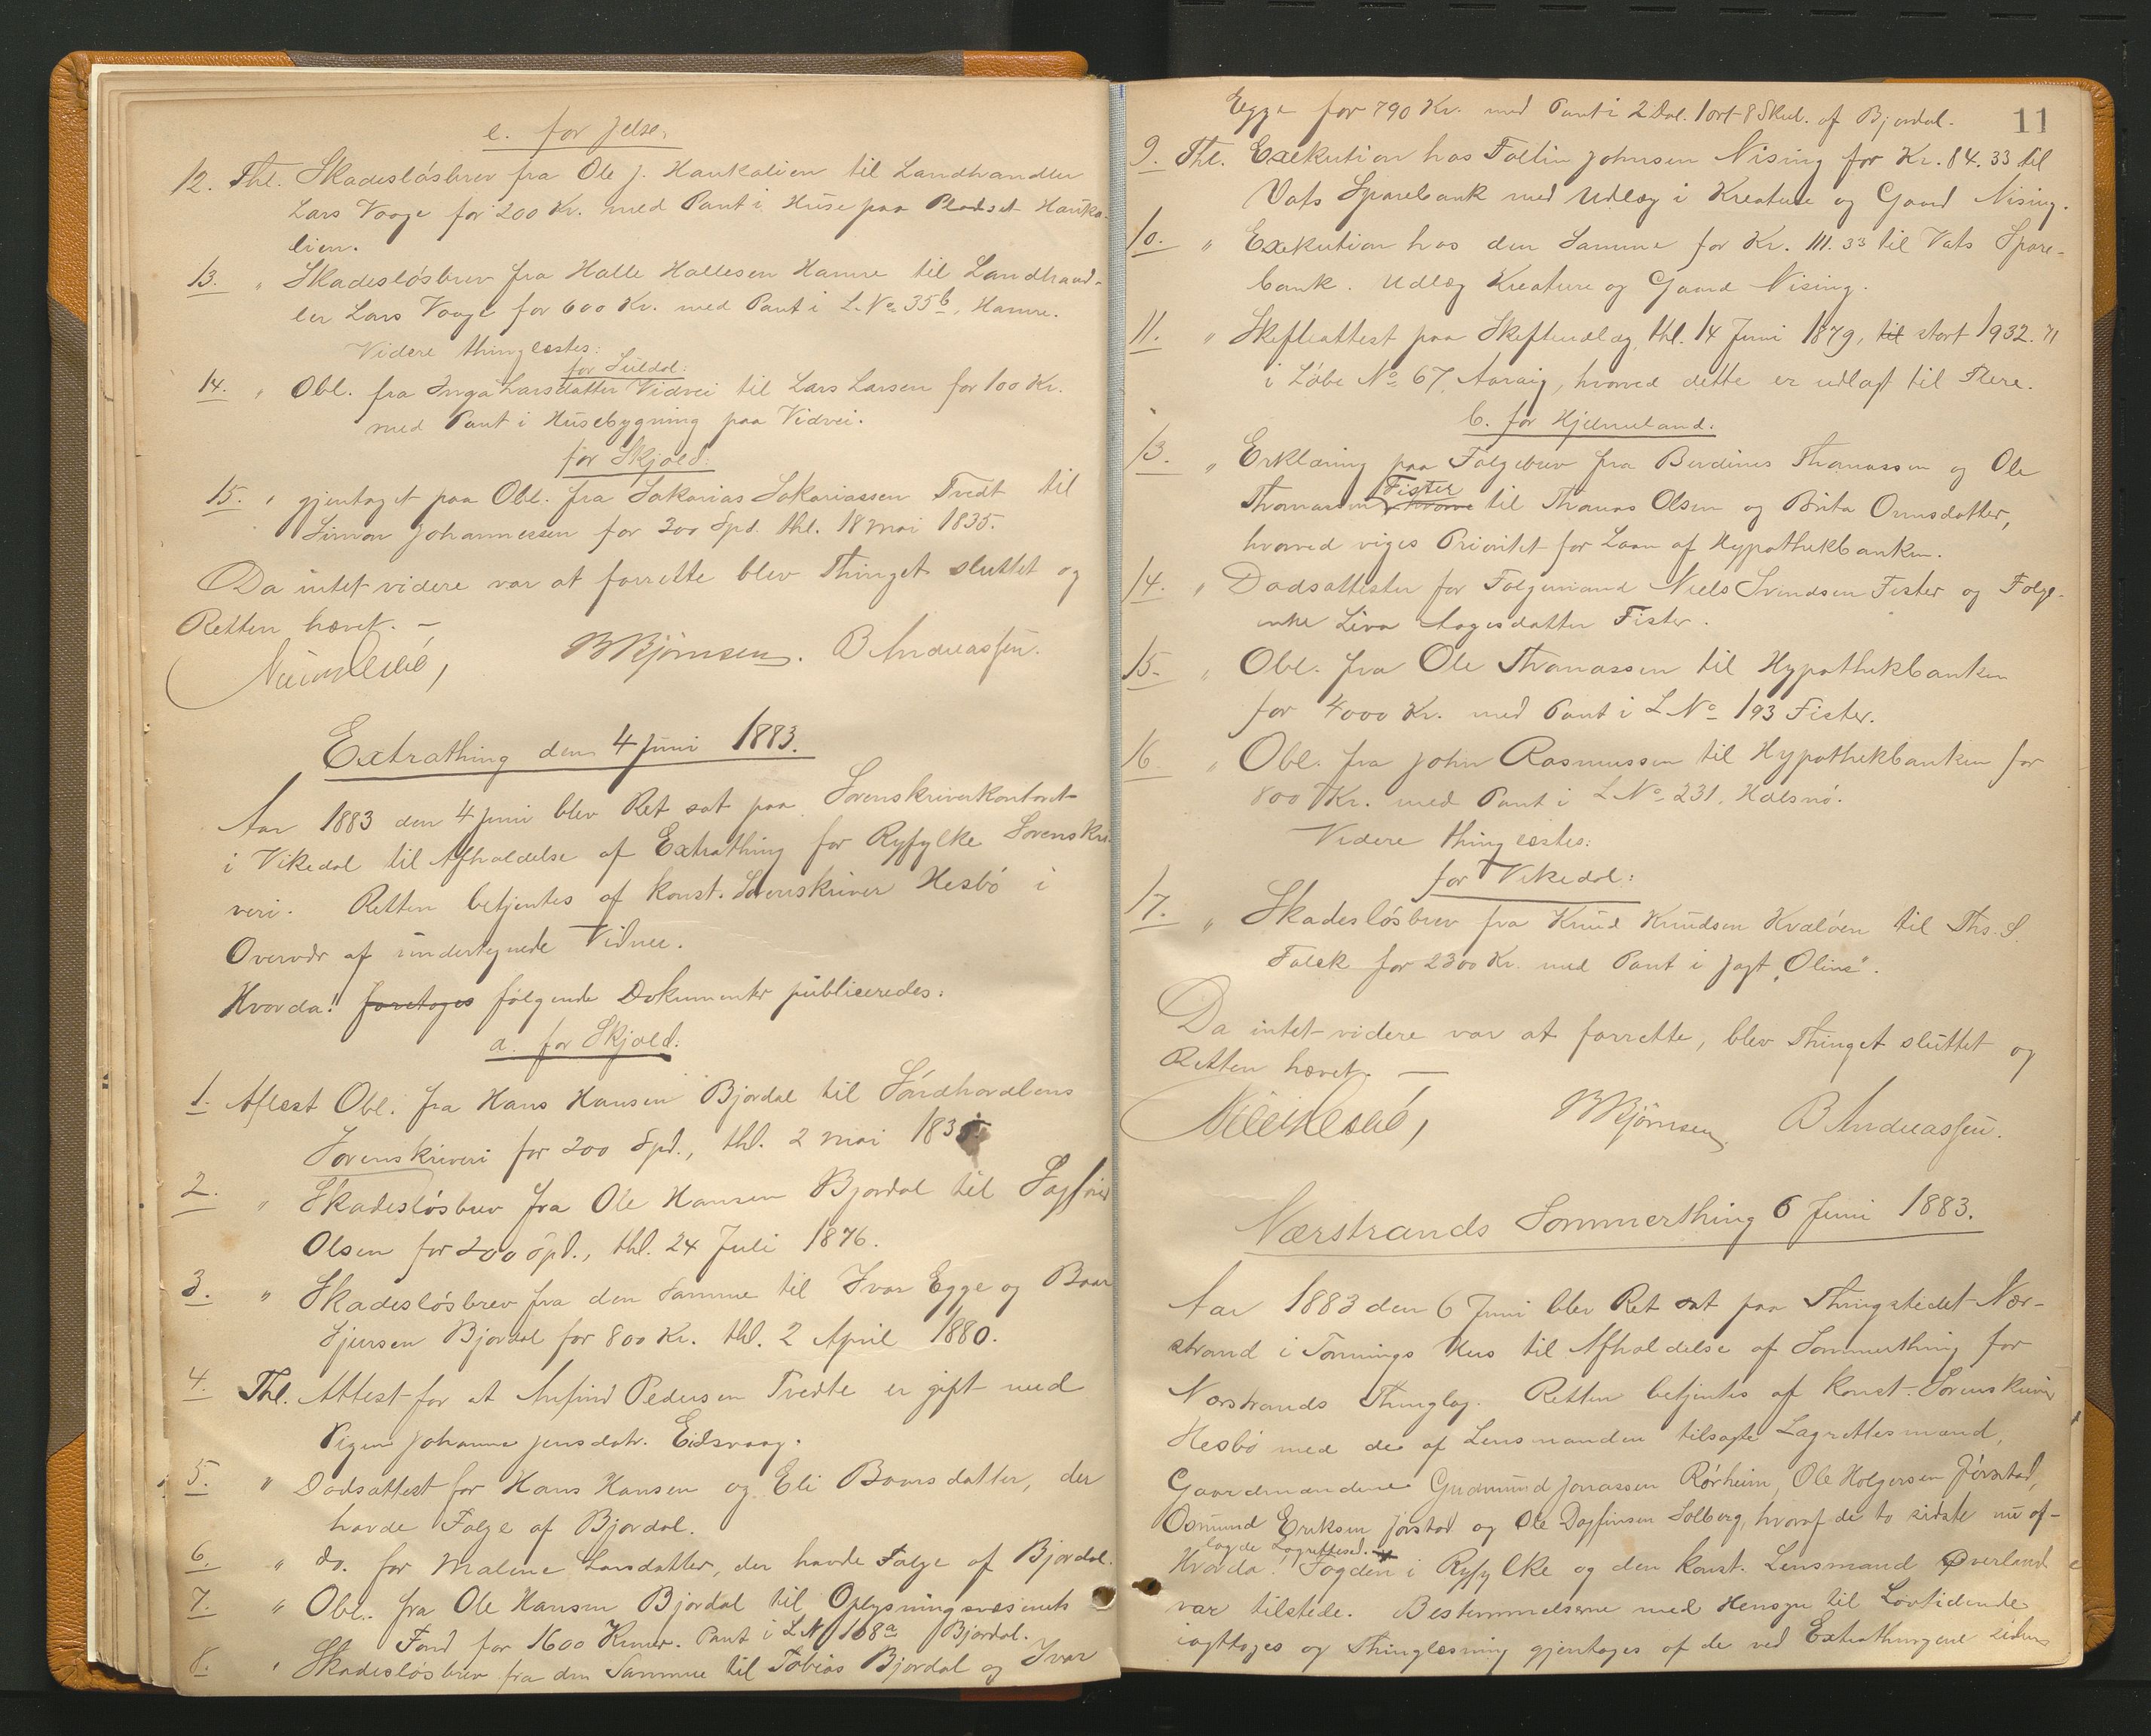 e. for Jelse.
12. Thl. Skadesløsbrev fra Ole J. Haukalien til Landhandler
Lars Vaage for 200 Kr. med Pant i Huse paa Pladset Hauka-
lien.
13. " Skadesløsbrev fra Halle Hallesen Hamre til Landhand-
ler Lars Vaage for 600 Kr. med Pant i L. No 35b, Hamre.
Videre thinglæstes:
for Suldal:
14. " Obl. fra Inga Larsdatter Vidvei til Lars Larsen for 100 Kr.
med Pant i Husebygning paa Vidvei.
for Skjold:
15. " gjentaget paa Obl. fra Sakarias Sakariassen Tvedt til
Simon Johannessen for 300 Spd. thl. 18 Mai 1835.
Da intet videre var at forrette blev Thinget sluttet og
Retten hævet. —
B Bjørnsen. B Andreassen.
Extrathing den 4 Juni 1883.
Aar 1883 den 4 Juni blev Ret sat paa Sorenskriverkontoret
i Vikedal til Afholdelse af Extrathing for Ryfylke Sorenskri-
veri. Retten betjentes af konst. Sorenskriver Hesbø i
Overvær af undertegnede Vidner.
Hvorda! foretoges følgende Dokumenter publiceredes:
a. for Skjold.
1. Aflæst Obl. fra Hans Hansen Bjordal til Søndhordlens
Sorenskriveri for 200 Spd., thl. 2 Mai 1835.
2. " Skadesløsbrev fra Ole Hansen Bjordal til
Olsen for 200 Spd., thl. 24 Juli 1876.
3. " Skadesløsbrev fra den Samme til Ivar Egge og Baar
Sjursen Bjordal for 800 Kr. thl. 2 April 1880.
4. Thl. Attest for at Anfind Pedersen Tvedte er gift med
Pigen Johanne Jensdatr. Eidsvaag.
5. " Dødsattest for Hans Hansen og Eli Baarsdatter, der
havde Følge af Bjordal.
6. " do. for Malene Larsdatter, der havde Følge af Bjordal.
7. " Obl. fra Ole Hansen Bjordal til Oplysningsvæsenets
Fond for 1600 Kroner. Pant i L No 168a Bjordal.
8. " Skadesløsbrev fra den Samme til Tobias Bjordal og Ivar
11
Egge for 790 Kr. med Pant i 2 Dal. 1 ort 8 Skil. af Bjordal.
9. Thl. Exekution hos Tollin Johnsen Nising for Kr. 84.33 til
Vats Sparebank med Udlæg i Kreature og Gaard Nising.
10. " Exekution hos den Samme for Kr. 111.33 til Vats Spare-
bank. Udlæg Kreature og Gaard Nising.
11. " Skifteattest paa Skifteudlæg, thl. 14 Juni 1879, til stort 1932.71
i Løbe No 67, Aaraig, hvorved dette er udlagt til Flere.
b. for Hjelmeland.
13. " Erklæring paa Følgebrev fra Berdines Thomassen og Ole
Thomassen Fister til Thomas Olsen og Brita Ormsdatter,
hvorved viges Prioritet for Laan af Hypothekbanken.
14. " Dødsattester for Følgemand Niels Svendsen Fister og Følge-
enke Liva Aagesdatter Fister.
15. " Obl. fra Ole Thomassen til Hypothekbanken
for 4000 Kr. med Pant i L No 193 Fister.
16. " Obl. fra John Rasmussen til Hypothekbanken for
800 Kr. med Pant i L No 231. Halsnø.
Videre thinglæstes:
for Vikedal:
17. " Skadesløsbrev fra Knud Knudsen Kvaløen til Ths. S.
Falck for 2300 Kr. med Pant i Jagt „Oline".
Da intet videre var at forrette, blev Thinget sluttet og
Retten hævet. —
B Bjørnsen. B Andreassen.
Nærstrands Sommerthing 6 Juni 1883.
Aar 1883 den 6 Juni blev Ret sat paa Thingstedet Nær-
strand i Tonnings Hus til Afholdelse af Sommerthing for
Nærstrands Thinglag. Retten betjentes af konst. Sorenskriver
Hesbø med de af Lensmanden tilsagte Lagrettesmænd,
Gaardmændene Gudmund Jonassen Rørheim, Ole Holgersen Jørstad,
Osmund Eriksen Jørstad og Ole Dagfinsen Solberg, hvoraf de to sidste nu af-
lagde Lagrettesed.
Hvorda! Fogden i Ryfylke og den konst. Lensmand Øverland
var tilstede. Bestemmelserne med Hensyn til Lovtidende
iagttoges og Thinglæsning gjentoges af de ved Extrathingene siden